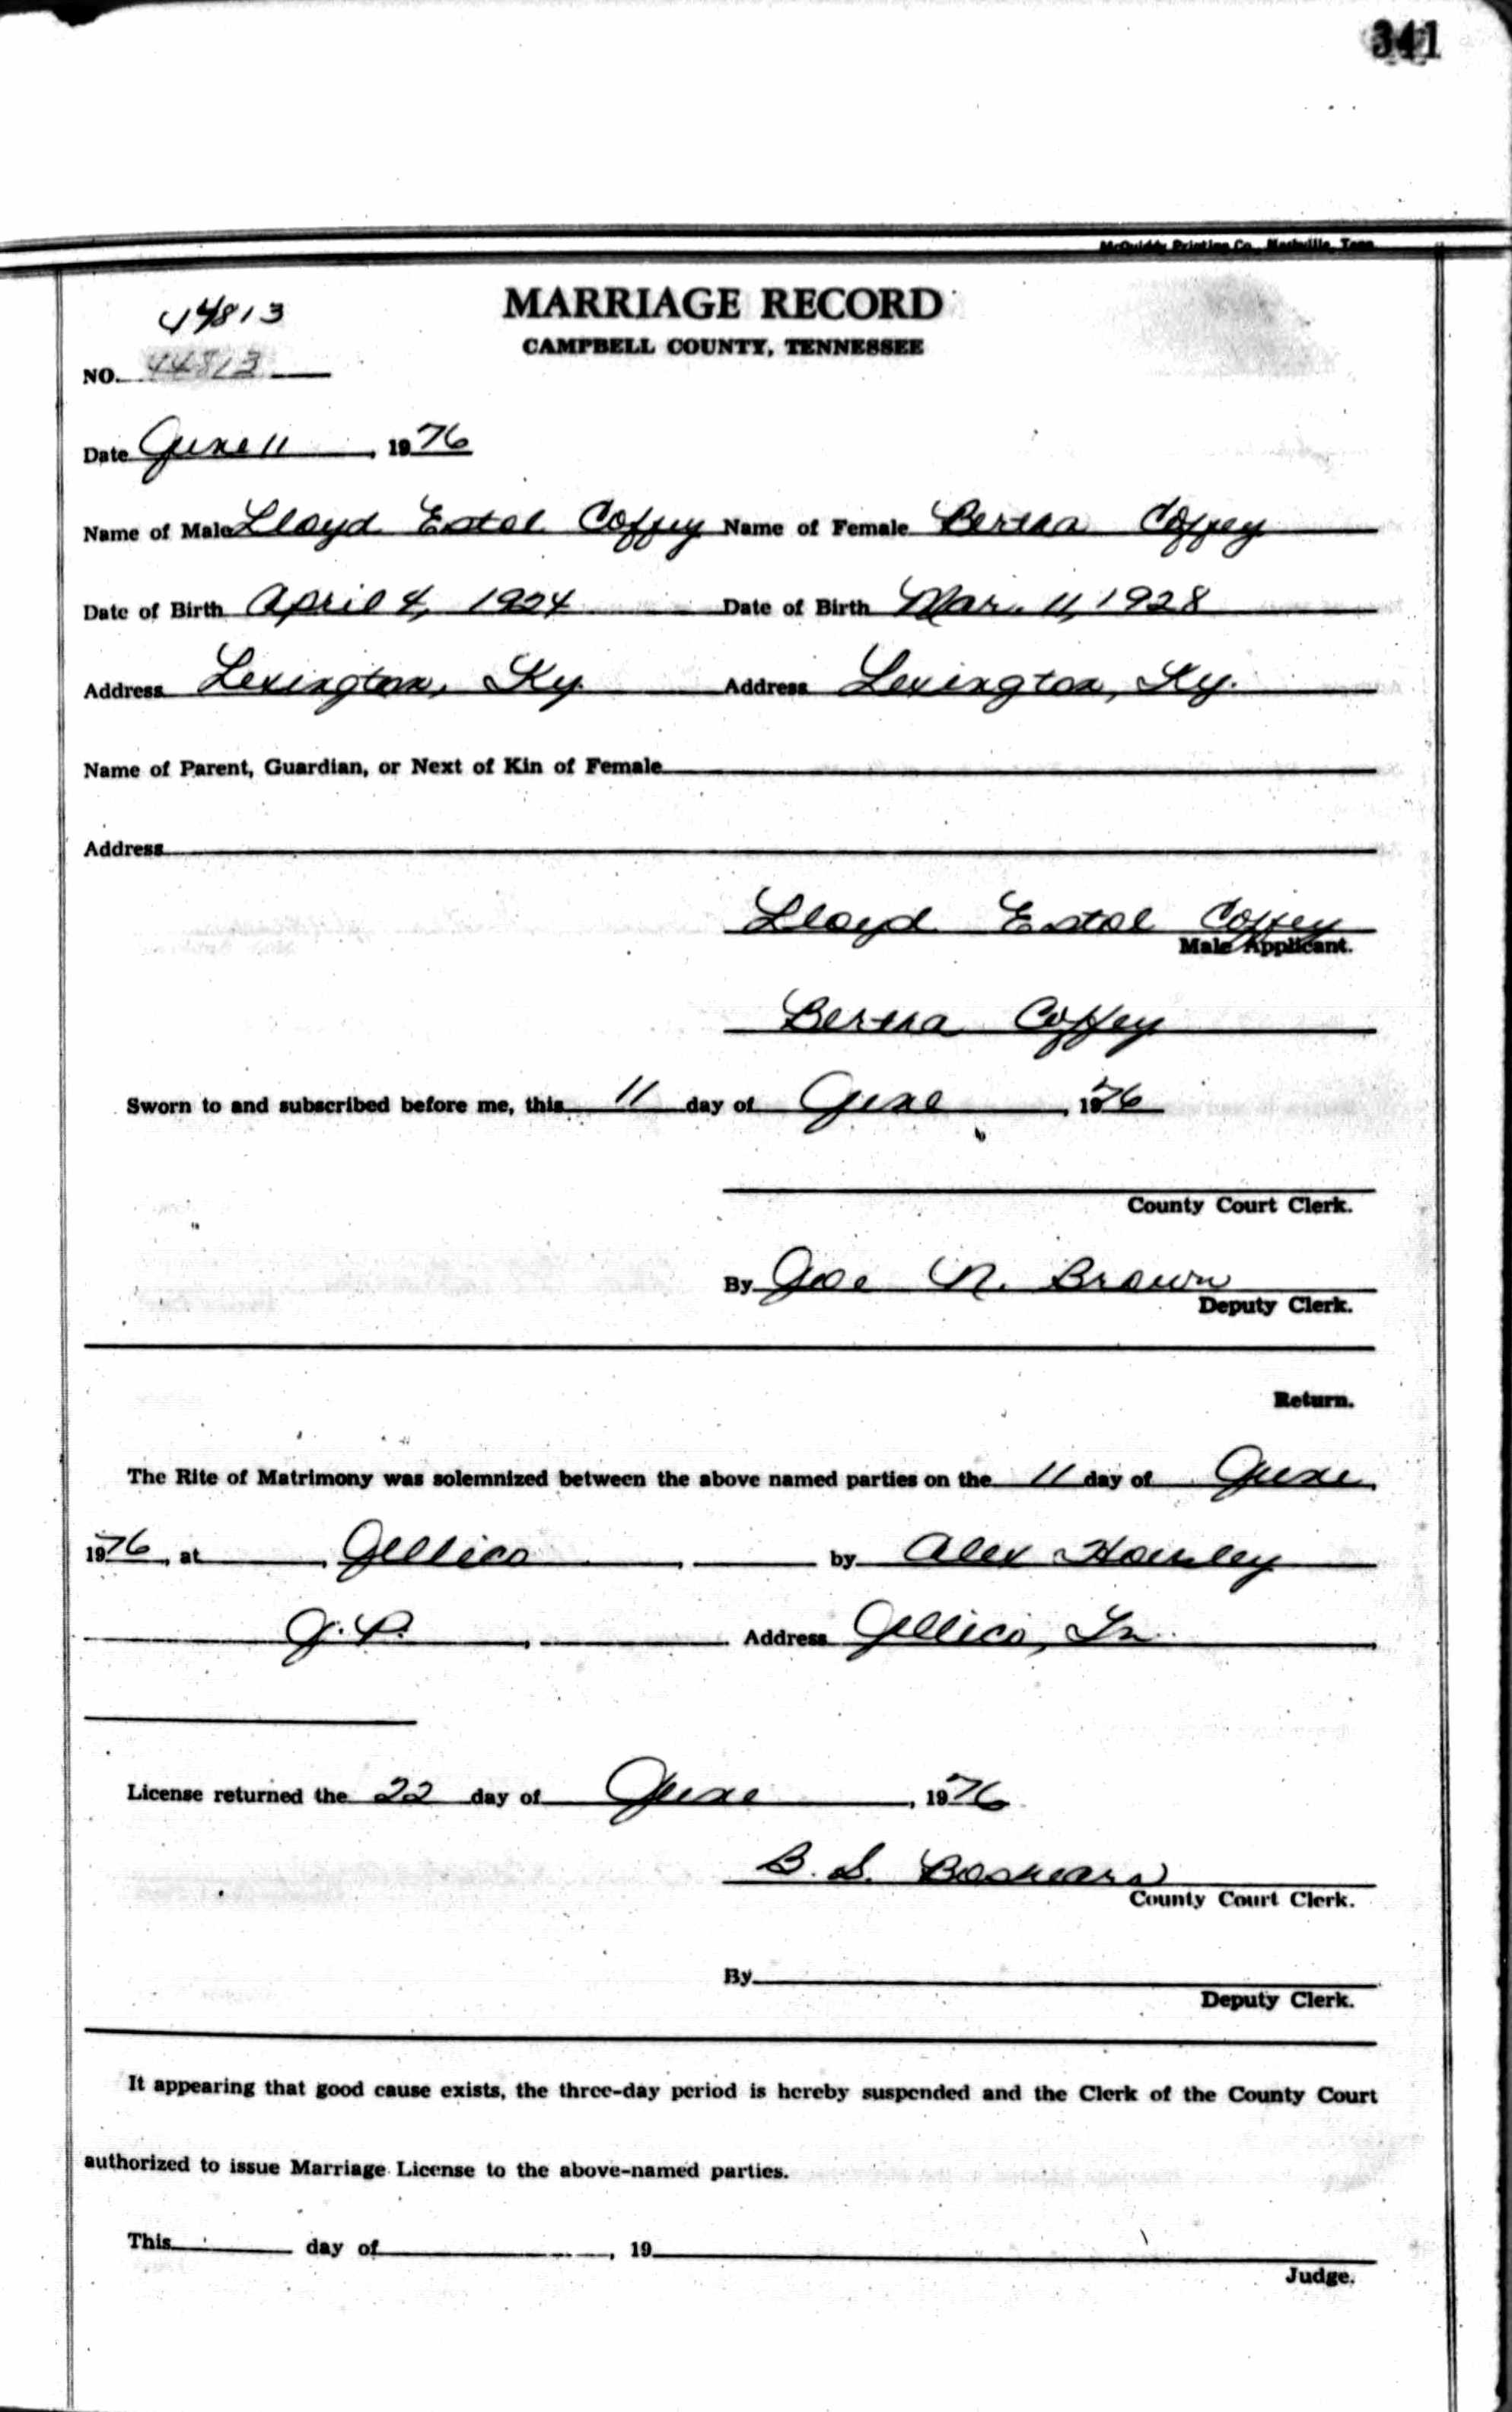 341
McQuiddy Printing Co., Nashville, Tenn.
44813
MARRIAGE RECORD
CAMPBELL COUNTY, TENNESSEE
NO. 44813
Date June 11, 1976
Name of Male Lloyd Estol Coffey Name of Female Bertha Coffey
Date of Birth April 4, 1924 Date of Birth Mar. 11, 1928
Address Lexington, Ky. Address Lexington, Ky.
Name of Parent, Guardian, or Next of Kin of Female
Address
Lloyd Estol Coffey
Male Applicant.
Bertha Coffey
Sworn to and subscribed before me, this 11 day of June, 1976
County Court Clerk.
By Joe N. Brown
Deputy Clerk.
Return.
The Rite of Matrimony was solemnized between the above named parties on the 11 day of June,
1976, at Jellico, by Alex
J.P., Address Jellico, Tn.
License returned the 22 day of June, 1976
B. S.
County Court Clerk.
By
Deputy Clerk.
It appearing that good cause exists, the three-day period is hereby suspended and the Clerk of the County Court
authorized to issue Marriage License to the above-named parties.
This day of , 19
Judge.